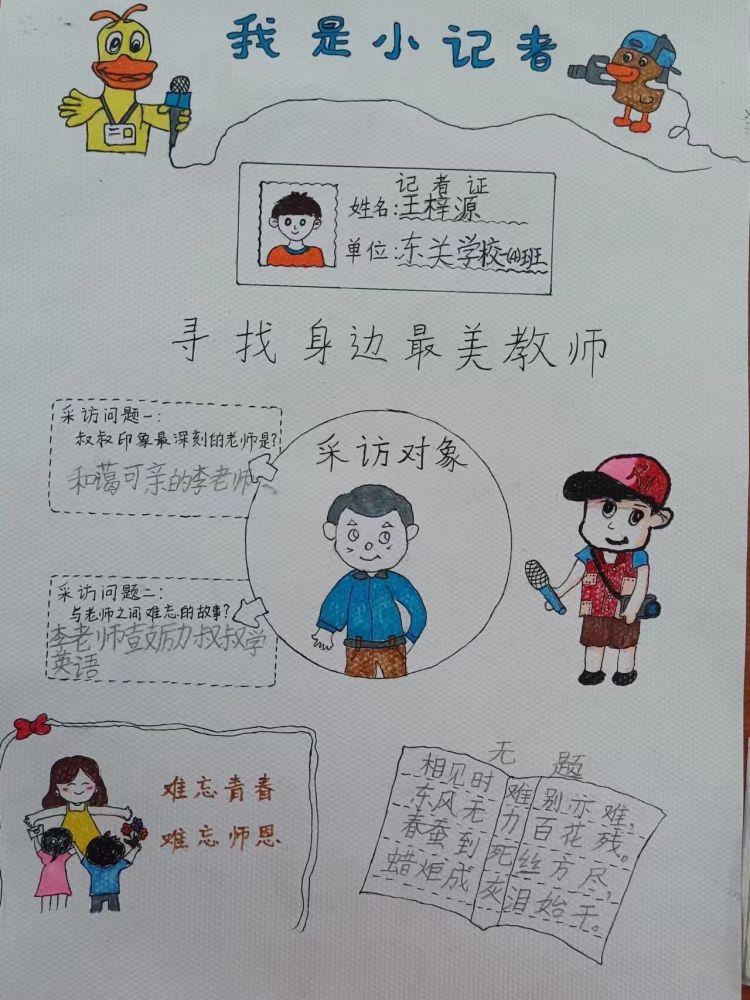 我是小记者
记者证
姓名:王梓源
单位:东关学校一(4)班
寻找身边最美教师
采访问题一:
叔叔印象最深刻的老师是?
和蔼可亲的李老师
采访对象
采访问题二:
与老师之间难忘的故事?
李老师鼓励叔叔学
英语
难忘青春
难忘师恩
无题
相见时难别亦难,
东风无力百花残。
春蚕到死丝方尽,
蜡炬成灰泪始干。